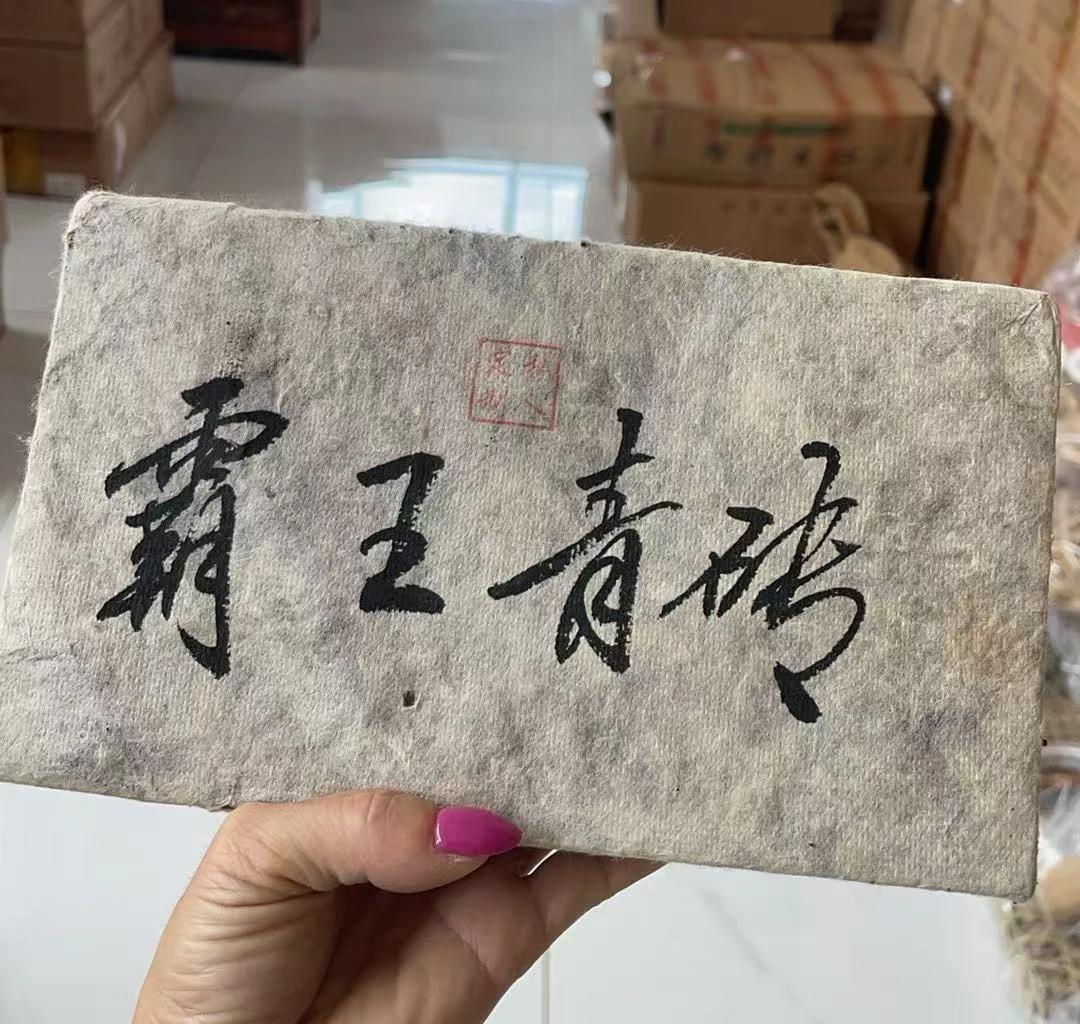 私人
定制
霸王青砖